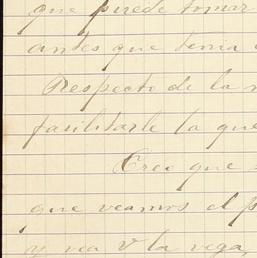 que puede tomar
antes que tenia
Respecto de la
facilitarle lo que
Creo que
que veamos el p
y vea V la vega,